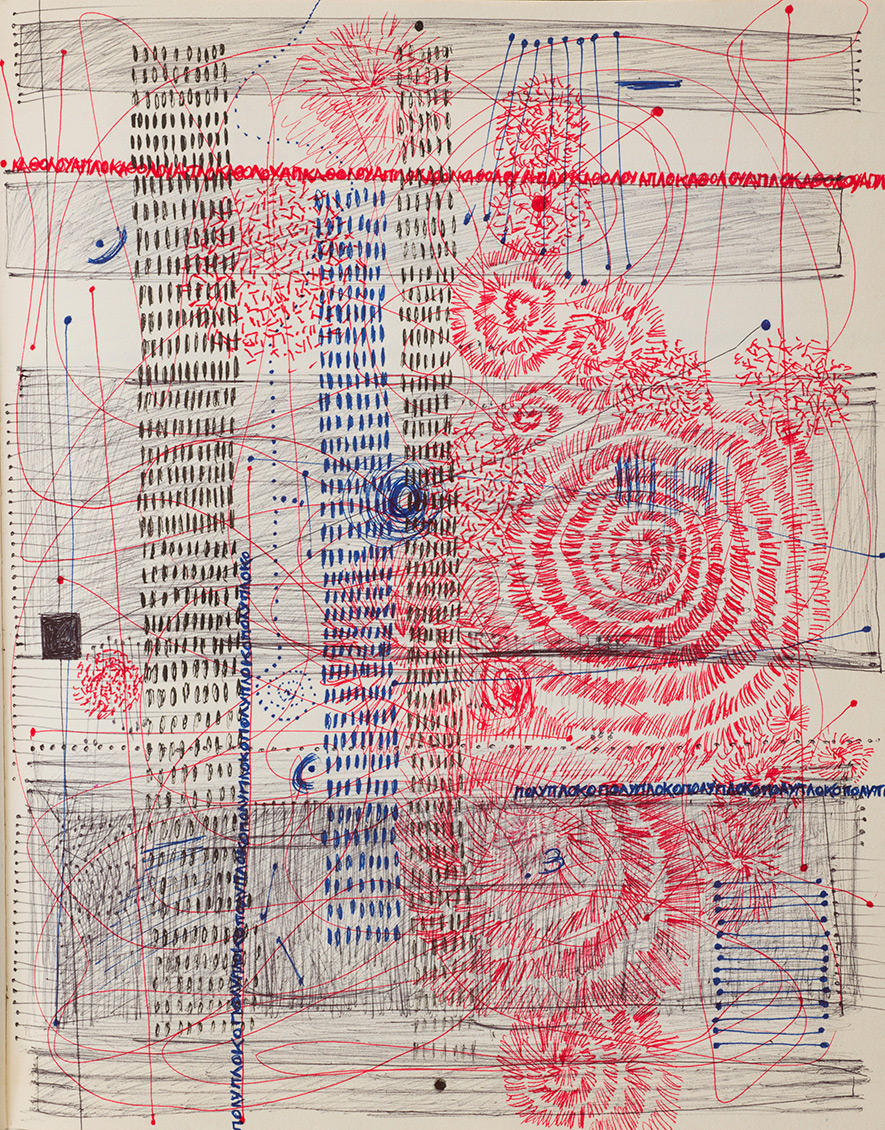 ΚΑΘΟΛΟΥΑΠΛΟΚΑΘΟΛΟΥΑΠΛΟΚΑΘΟΛΟΥΑΠΚΑΘΟΛΟΥΑΠΛΟΚΑΘΟΛΟΥΚΑΘΟΛΟΥΑΠΛΟΚΑΘΟΛΟΥΑΠΛΟΚΑΘΟΛΟΥΑΠΛΟΚΑΘΟΛΟΥΑΠΛ
ΠΟΛΥΠΛΟΚΟΠΟΛΥΠΛΟΚΟΠΟΛΥΠΛΟΚΟΠΟΛΥΠΛΟΚΟΠΟΛΥΠΛΟΚΟΠΟΛΥΠΛΟΚΟΠΟΛΥΠΛΟΚΟ
ΠΟΛΥΠΛΟΚΟΠΟΛΥΠΛΟΚΟΠΟΛΥΠΛΟΚΟΠΟΛΥΠΛΟΚΟΠΟΛΥΠ